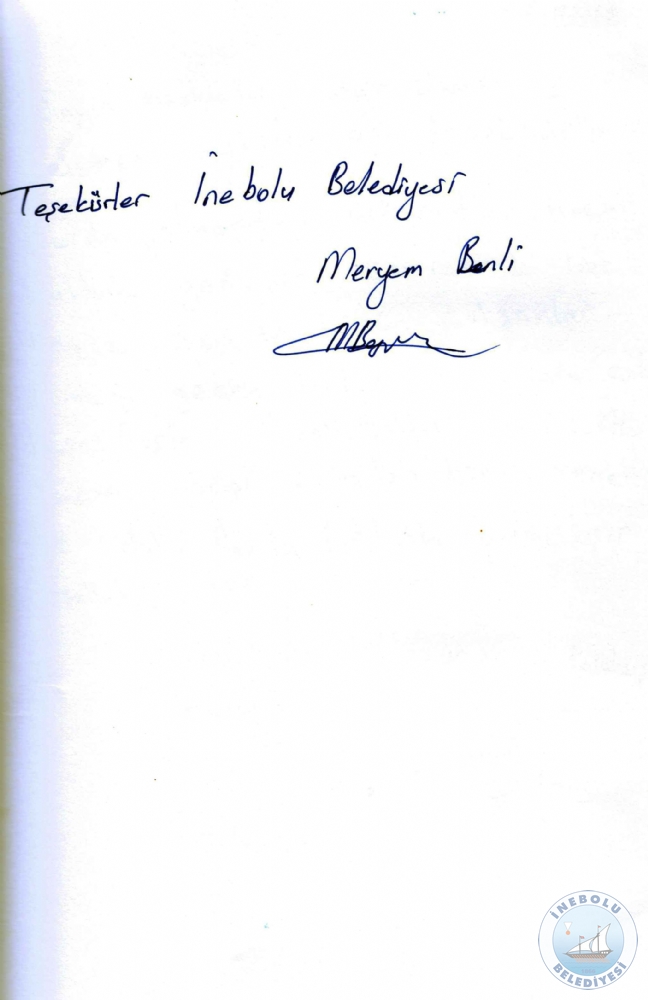 Teşekürler İnebolu Belediyesi
Meryem Benli
İNEBOLU
BELEDİYESİ